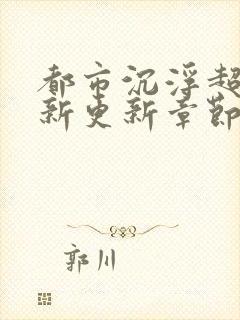 都市沉浮超
新更新章節
郭川